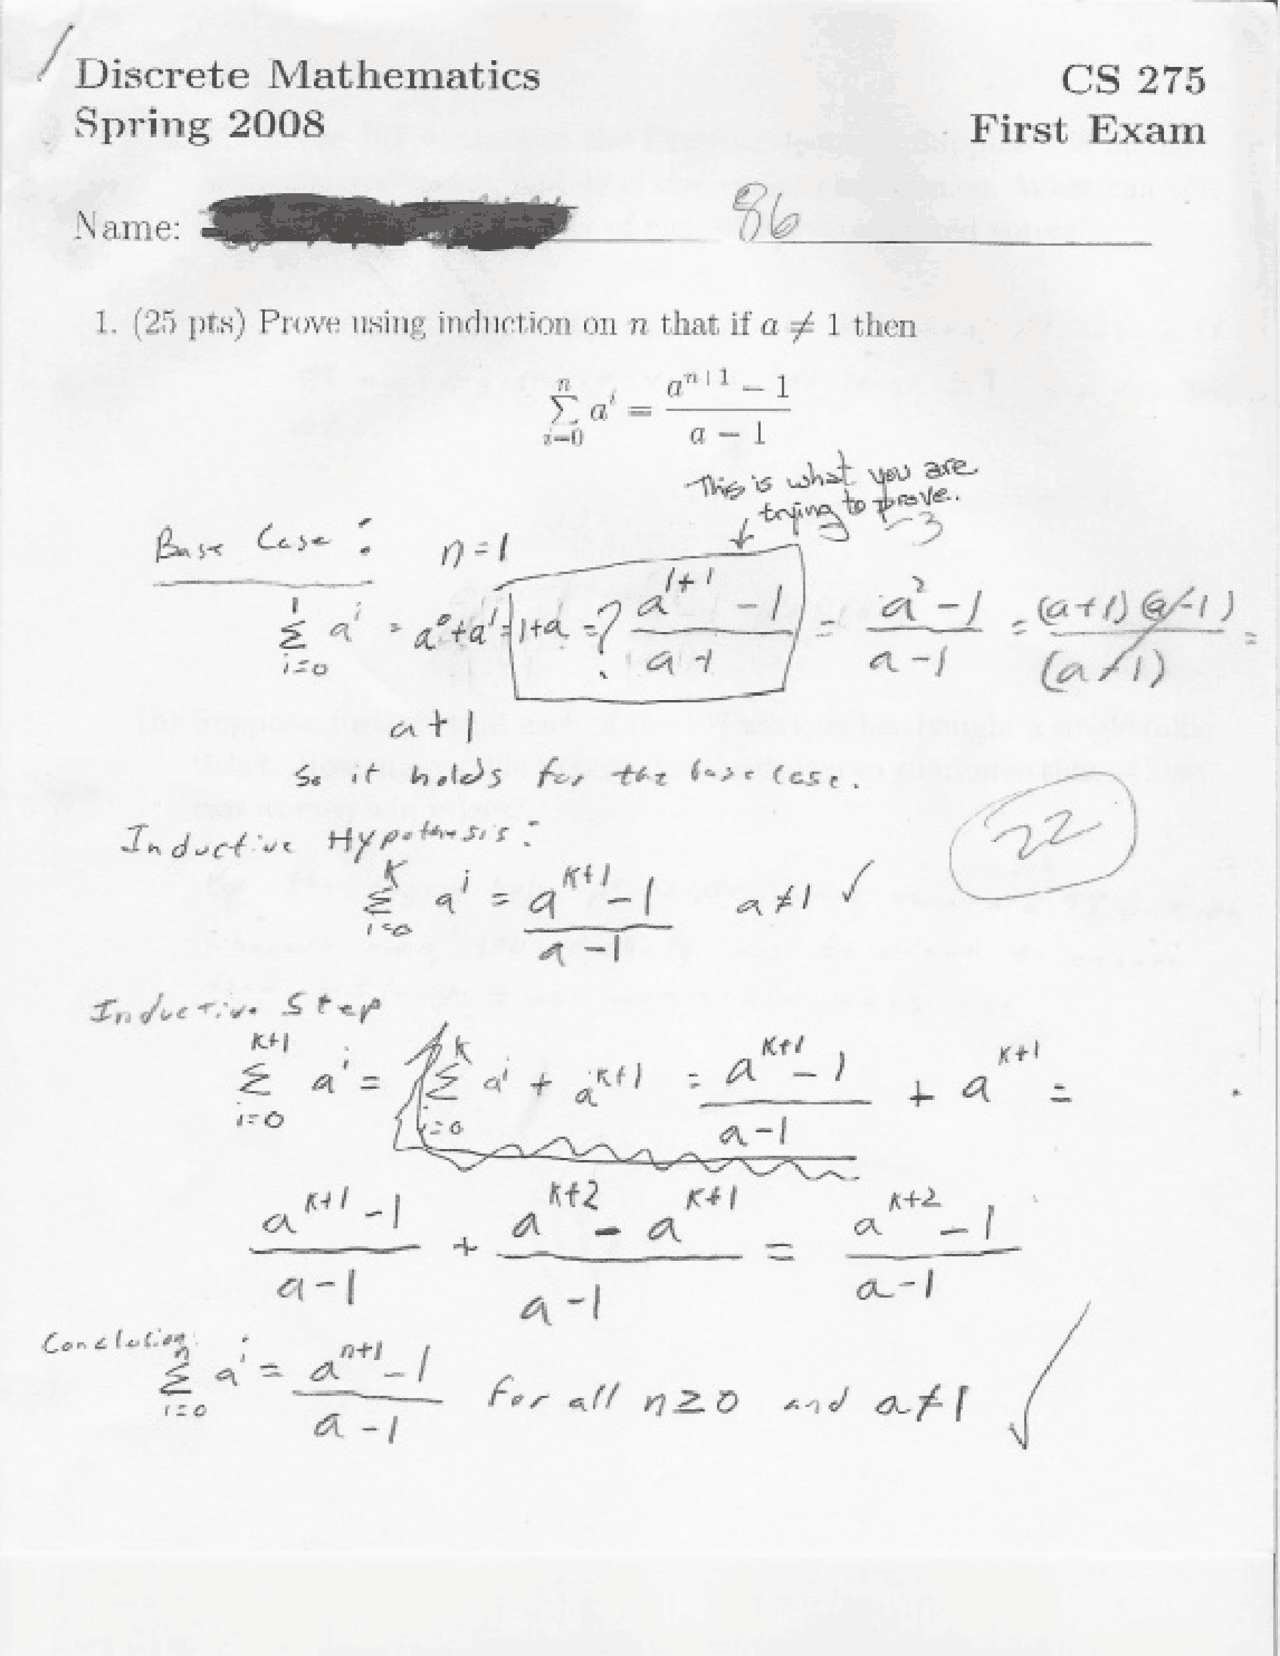 Discrete Mathematics CS 275
Spring 2008 First Exam
Name: 86
1. (25 pts) Prove using induction on n that if a ≠ 1 then
n
∑ aⁱ = (aⁿ⁺¹ − 1) / (a − 1)
i=0
This is what you are
trying to prove.
-3
Base Case: n=1
1
∑ aⁱ = a⁰+a¹ = 1+a =? (a¹⁺¹ − 1) / (a-1) = (a² − 1) / (a−1) = (a+1)(a-1) / (a-1) =
i=0
a+1
So it holds for the base case.
22
Inductive Hypothesis:
K
∑ aⁱ = (aᴷ⁺¹ − 1) / (a−1) a≠1 ✓
i=0
Inductive Step
K+1 K
∑ aⁱ = ∑ aⁱ + aᴷ⁺¹ = (aᴷ⁺¹ − 1) / (a−1) + aᴷ⁺¹ =
i=0 i=0
(aᴷ⁺¹ − 1) / (a−1) + (aᴷ⁺² − aᴷ⁺¹) / (a−1) = (aᴷ⁺² − 1) / (a−1)
Conclusion:
n
∑ aⁱ = (aⁿ⁺¹ − 1) / (a−1) for all n≥0 and a≠1 ✓
i=0